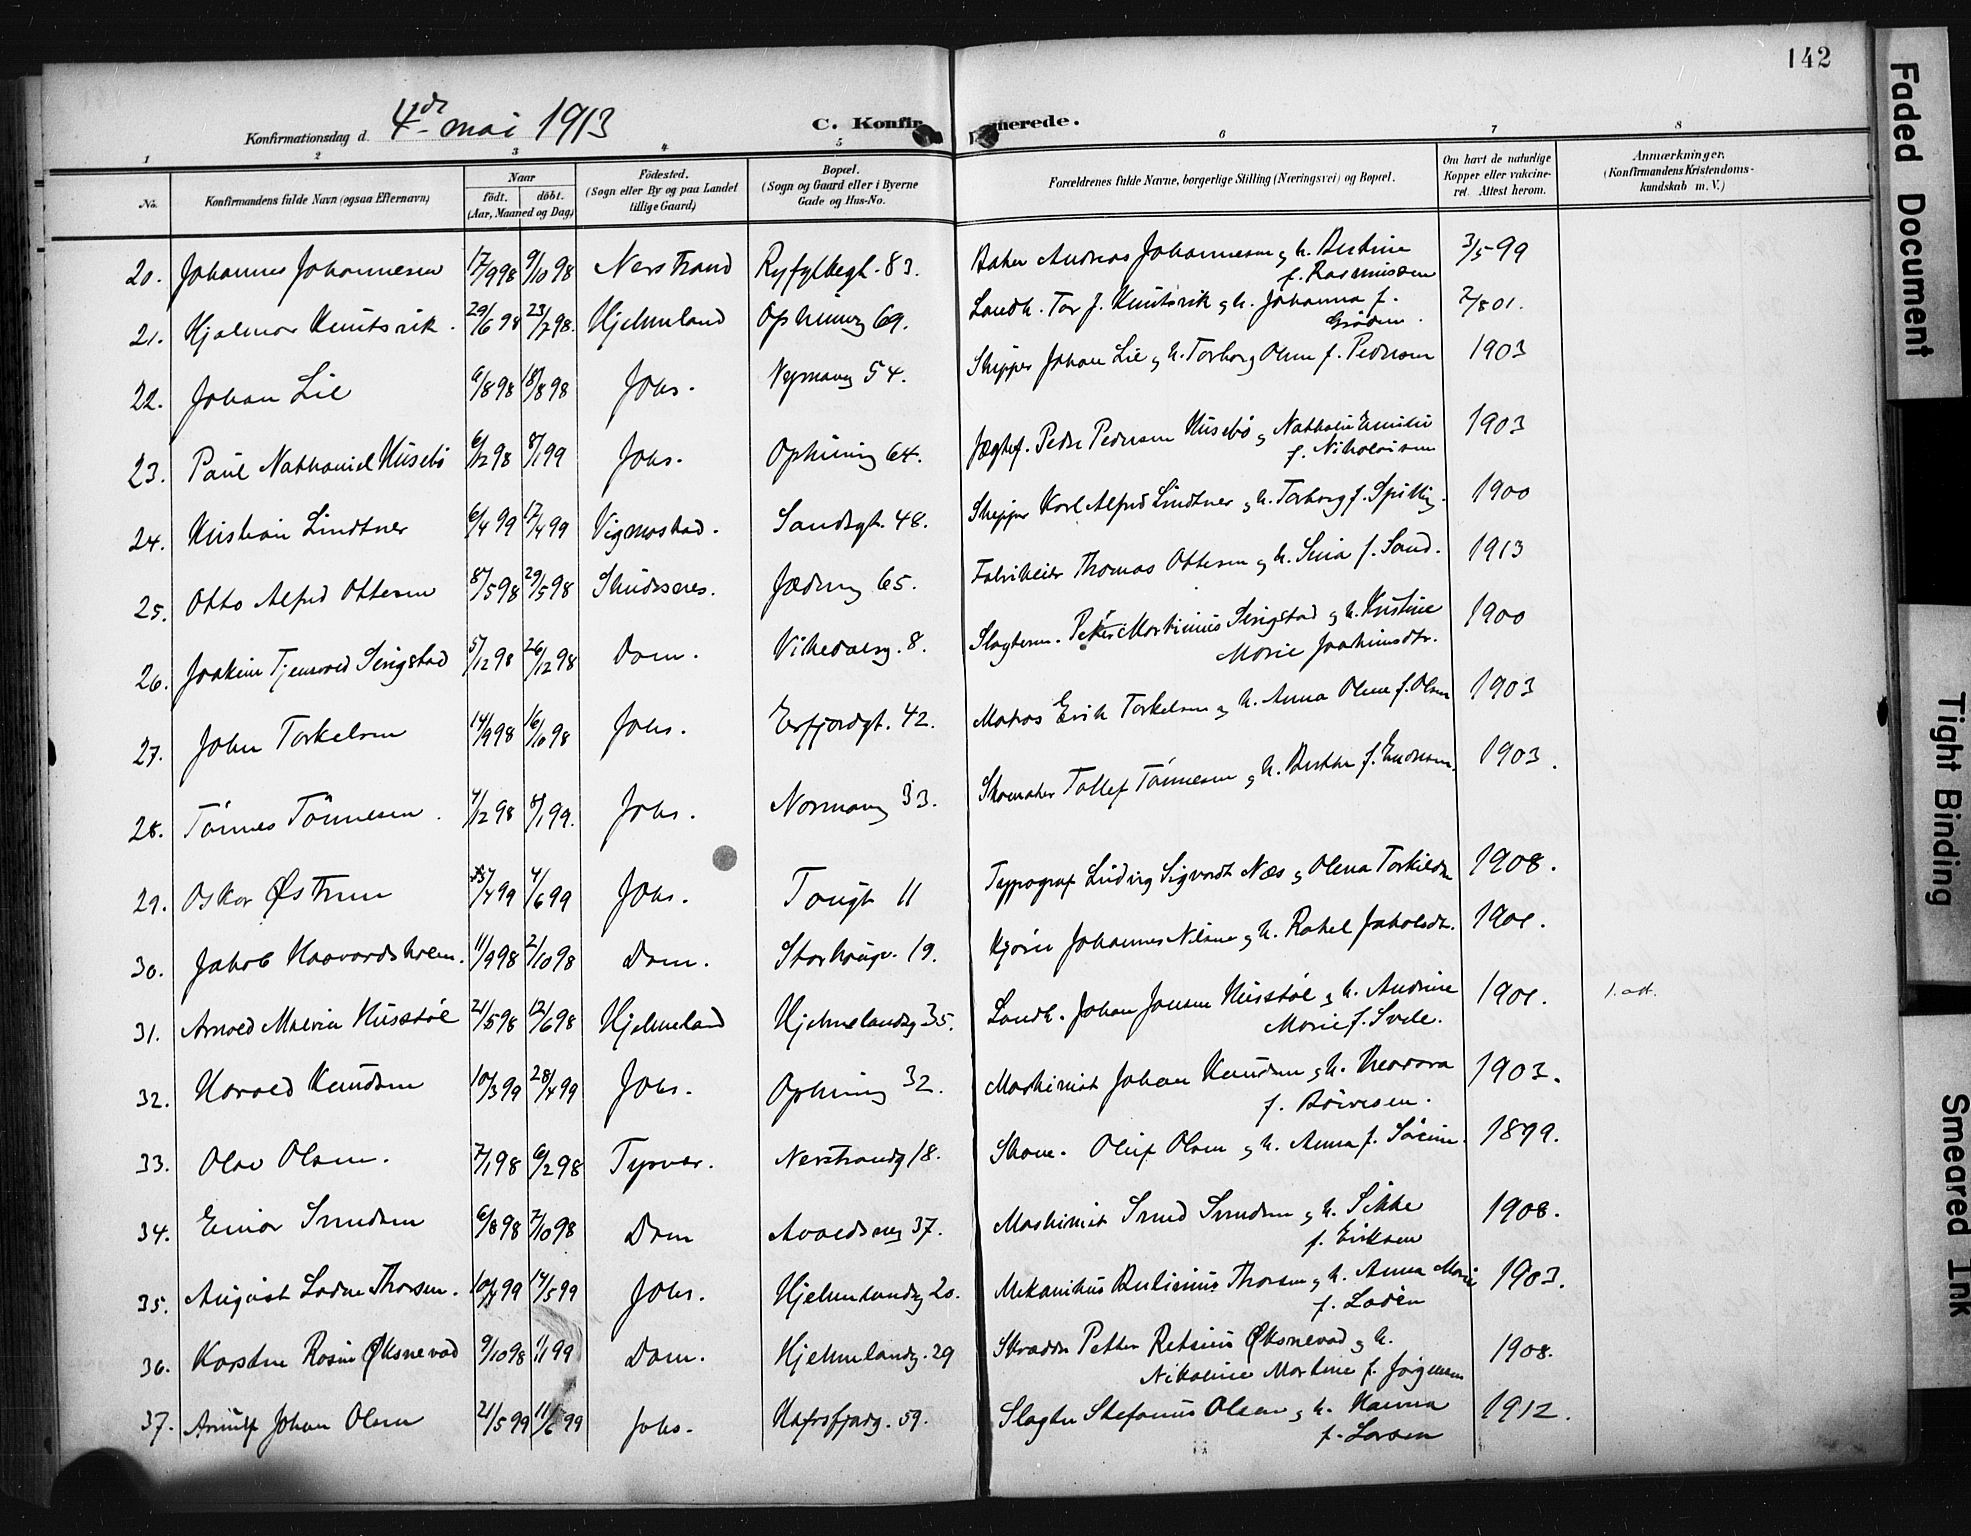 142
Konfirmationsdag d. 4de mai 1913
C. Konfir merede.
1 2 3 4 5 6 7 8
No.
Konfirmandens fulde Navn (ogsaa Efternavn)
Naar
födt. döbt.
(Aar, Maaned og Dag)
Födested.
(Sogn eller By og paa Landet
tillige Gaard)
Bopæl.
(Sogn og Gaard eller i Byerne
Gade og Hus-No.
Forældrenes fulde Navne, borgerlige Stilling (Næringsvei) og Bopæl.
Om havt de naturlige
Kopper eller vakcine-
ret. Attest herom.
Anmærkninger.
(Konfirmandens Kristendoms-
kundskab m. V.)
20. Johannes Johannesen 17/9 98 9/10 98 Nerstrand Ryfylkegt. 83. Baker Andreas Johannesen g h. Bertine 3/5 99
f. Rasmussen
21. Hjalmar Knutsvik. 29/6 98 23/7 98. Hjelmeland Opheimg 69. Landh. Tor J. Knutsvik g h. Johanna f. 2/8 01.
22. Johan Lie 6/8 98 18/8 98 Johs. Nymanng 54. Skipper Johan Lie g h. Torborg Olene f. Pedersen 1903
23. Paul Nathaniel Husebö 6/12 98 8/1 99 Johs. Opheimg 64. Jægtef. Peder Pedersen Husebö g Nathalie Emilie 1903
f. Nikolaisen
24. Kristian Lindtner 6/4 99 17/4 99 Vigmostad. Sandsgt. 48. Skipper Karl Alfred Lindtner g h. Torborg f. Spilling. 1900
25. Otto Alfred Ottesen 8/5 98 29/5 98 Skudesnes. Jæderg 65. Fabrikeier Thomas Ottesen g h. Sina f. Sand. 1913
26. Joakim Tjensvold Sirigstad 5/12 98 26/12 98 Dom. Vikedalsg. 8. Slagterm. Peter Martinius Sirigstad g h. Kristine 1900
Marie Joachimsdtr.
27. John Torkelsen 14/9 98 16/10 98 Johs. Erfjordgt. 42. Matros Erik Torkelsen g h. Anna Oline f. Olsen 1903
28. Tönnes Tönnesen. 4/12 98 8/1 99. Johs. Normang 33. Skomaker Tollef Tönnesen g h. Berthe f. Endresen. 1903.
29. Oskar Østrem /4 99 4/6 99 Johs. Tougt 11 Typograf Ludvig Sigvardt Næs g Olena Torkildsen 1908.
30. Jakob Haavardsholm. 11/9 98 2/10 98 Dom. Storhaugv. 19. Kjörer Johannes Nilsen g h. Rakel Jakobsdt. 1901.
31. Arnold Malvin Husstöl 21/5 98 12/6 98 Hjelmeland Hjelmelandsg 35. Landh. Johan Jonsen Husstöl g h. Andrine 1901. 1. att.
Marie f. Svele.
32. Harald Knudsen 10/3 99 28/4 99 Johs. Opheimg 32. Maskinist Johan Knudsen g h. Theodora 1903.
f. Börresen.
33. Olav Olsen. 7/1 98 6/2 98 Tysvær. Nerstrandg 18. Skom. Oluf Olsen g h. Anna f. Sörine. 1899.
34. Einar Svendsen 6/8 98 7/10 98 Dom Avaldsnesg 37. Maskinist Svend Svendsen g h. Sikke 1908.
f. Eriksen
35. August Ladne Thorsen. 10/4 99 14/5 99 Johs. Hjelmelandsg 20. Mekanikus Bertinius Thorsen g h. Anna Marie 1903.
f. Laden
36. Karsten Rosin Øksnevad 9/10 98 1/1 99 Dom. Hjelmlandsg. 29 Skrædder Petter Retsius Øksnevad g h. 1908.
Nikoline Martene f. Jörgensen
37. Arnulf Johan Olsen 21/5 99 11/6 99 Johs. Hafrsfjordg. 59. Slagter Stefanus Olsen g h. Hanna 1912.
f. Larsen
Faded Document
Tight Binding
Smeared Ink